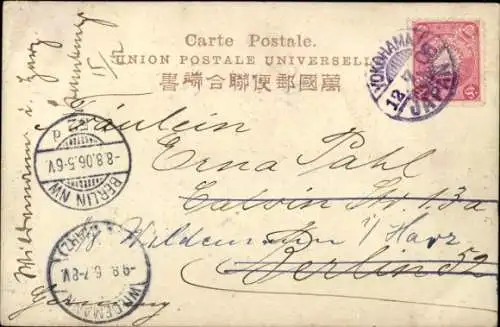 Carte Postale.
UNION POSTALE UNIVERSELLE
書端合聯便郵國萬
YOKOHAMA
JAPAN
Fräulein
Erna Pahl
Calvin Str. 13a
Wildemann i/Harz
Berlin 52
Germany
Wildemann i. Harz
BERLIN NW
-8.8.06.5-6V.
WILDEMANN
(HARZ)
-9.8.6.7-8V.